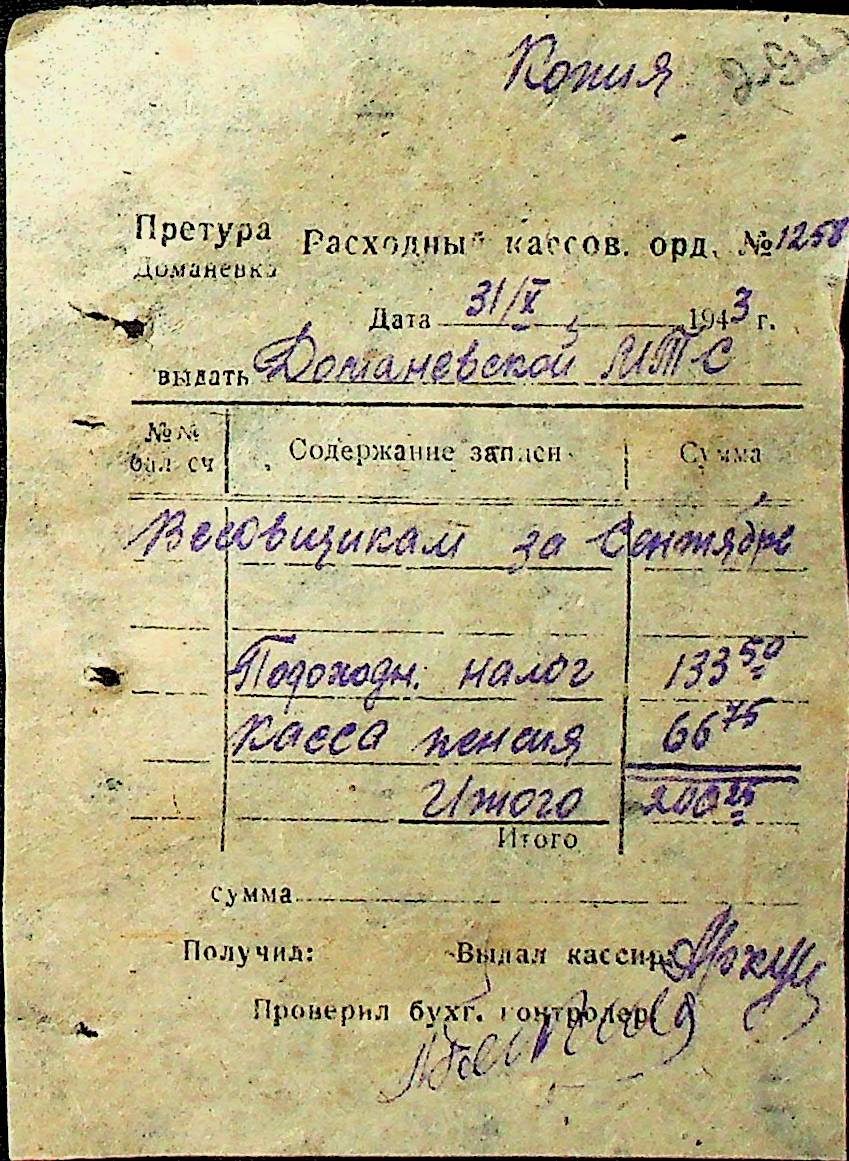 Копия
Претура Расходный кассов. орд. № 1258
Доманевка
Дата 31/X 1943 г.
выдать Доманевской МТС
№№ бал. сч Содержание записи Сумма
Весовщикам за Сентябрь
Подоходн. налог 133 50
Касса пенсия 66 75
Итого 200 25
Итого
сумма
Получил: Выдал кассир:
Проверил бухг. контролер